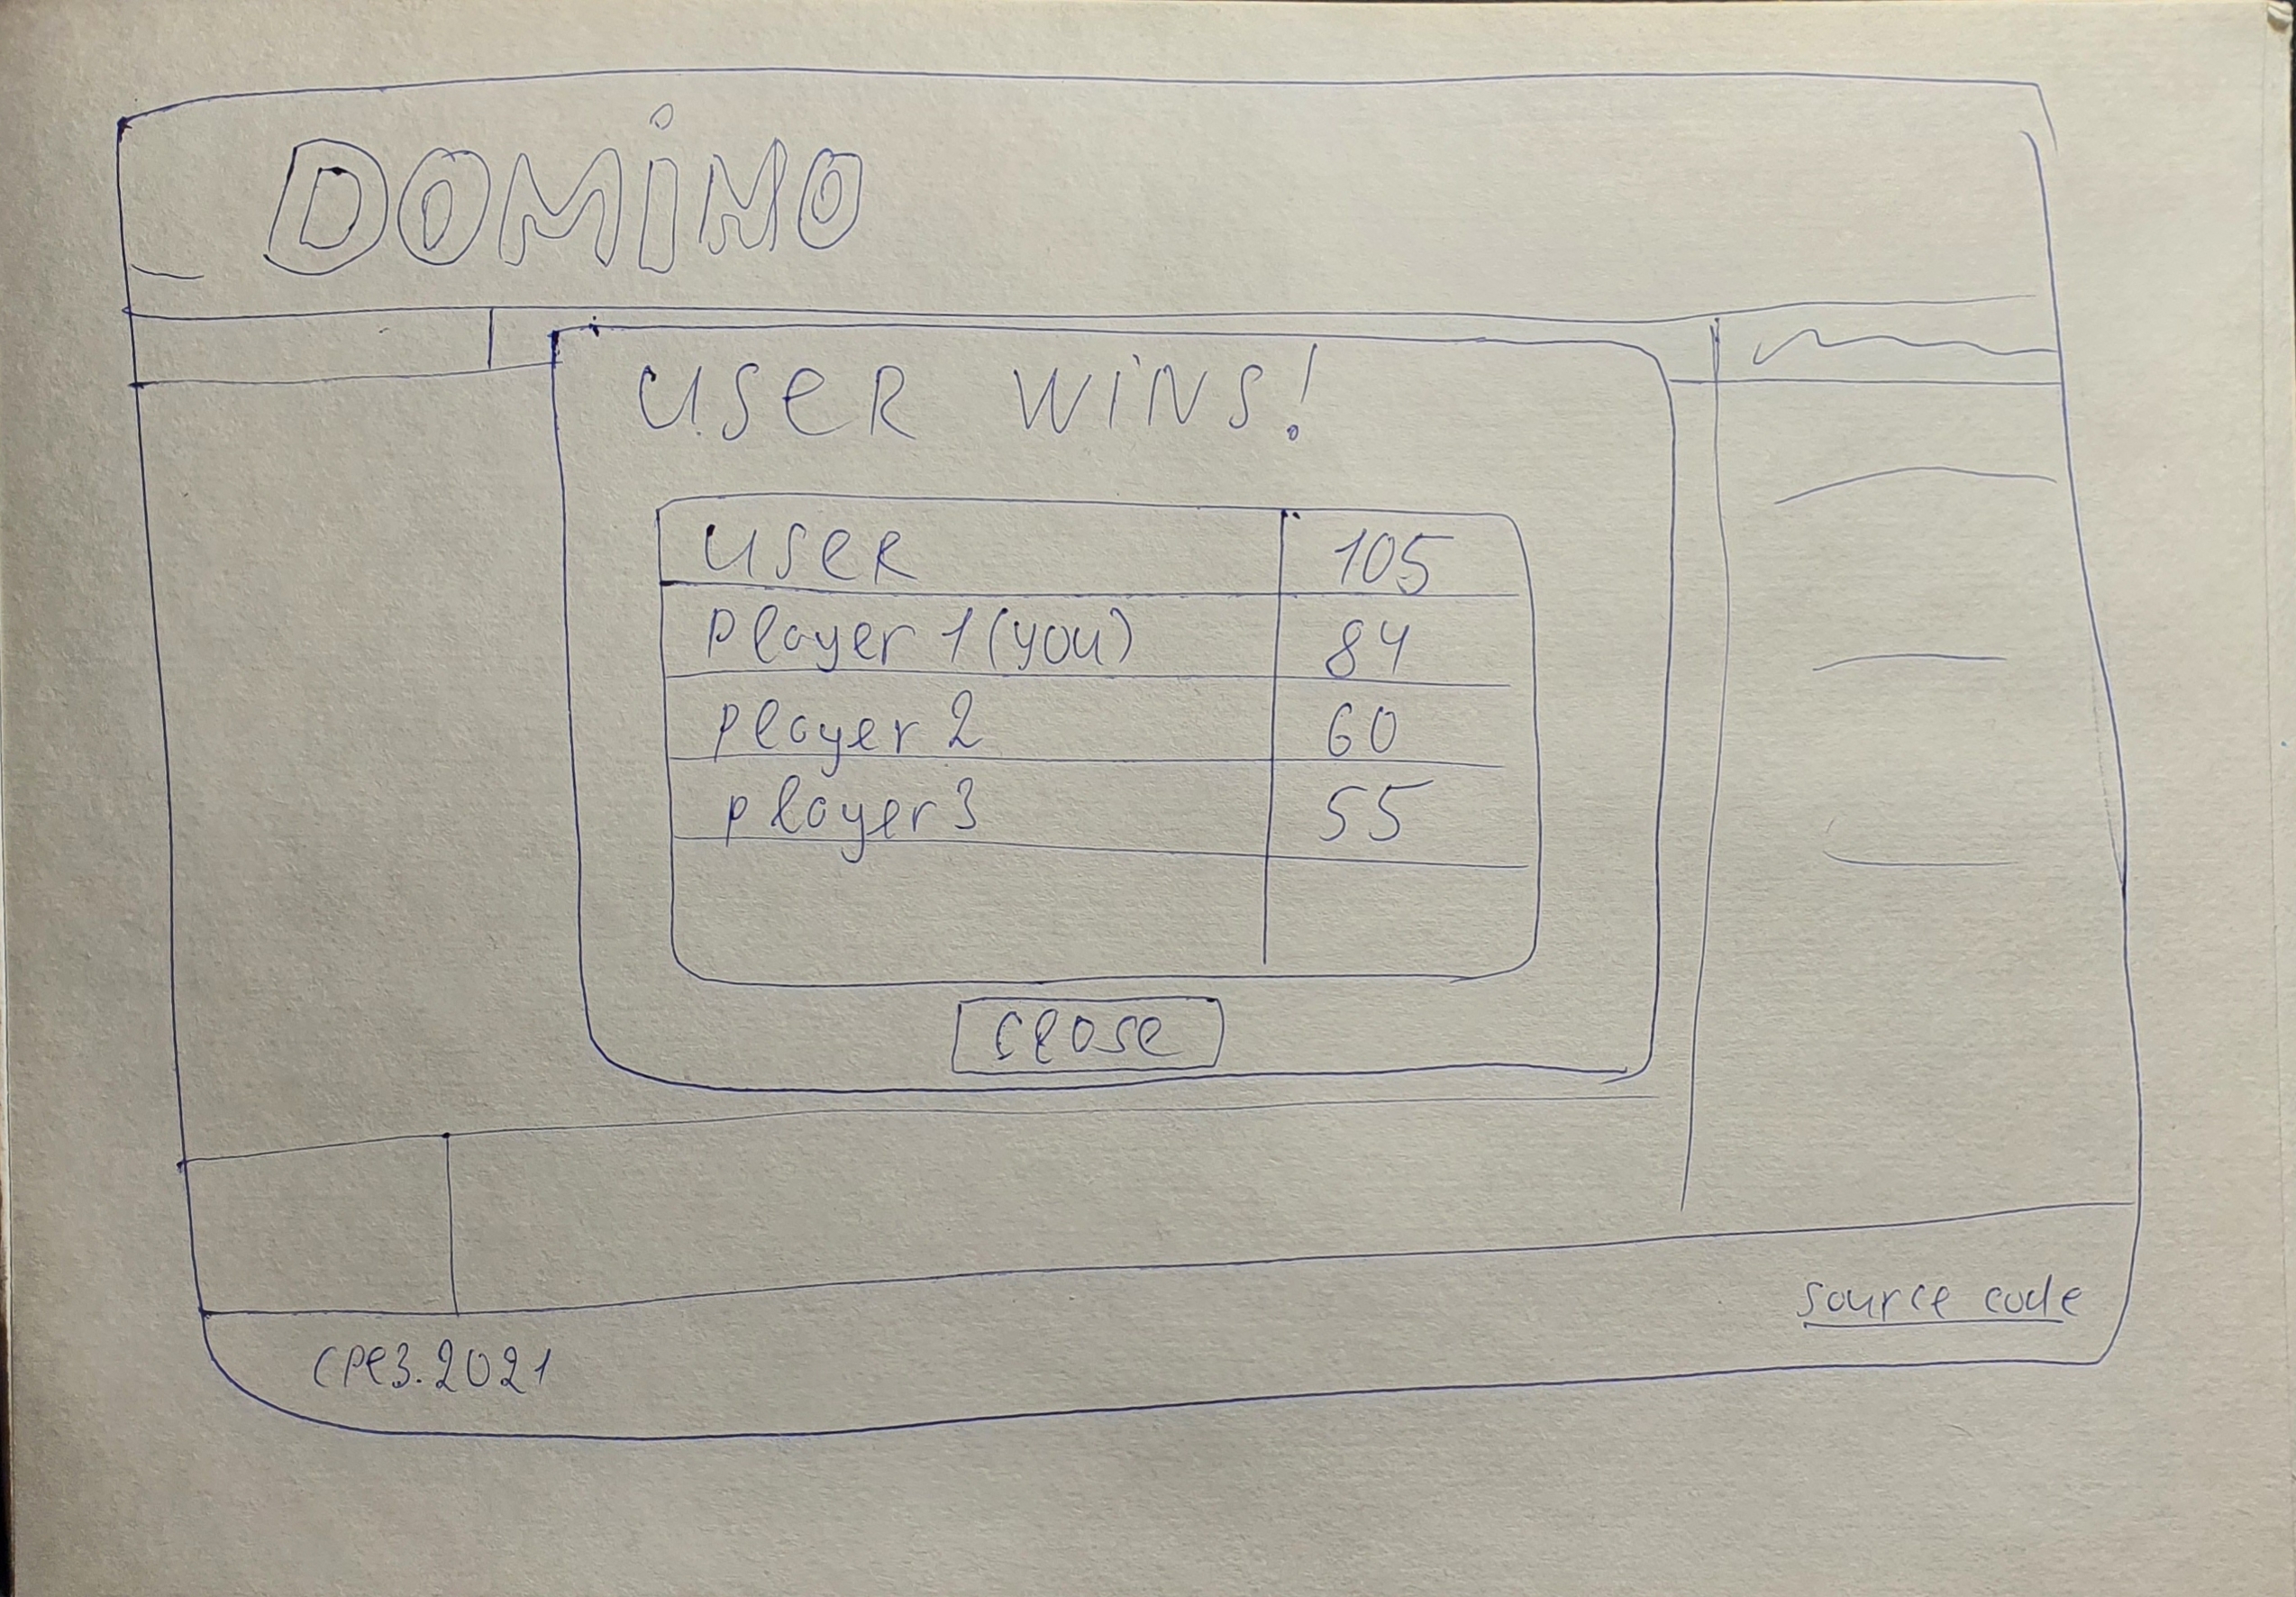 DOMINO
USER WINS!
USER 105
Player 1 (you) 84
player 2 60
player 3 55
close
source code
cpe3.2021